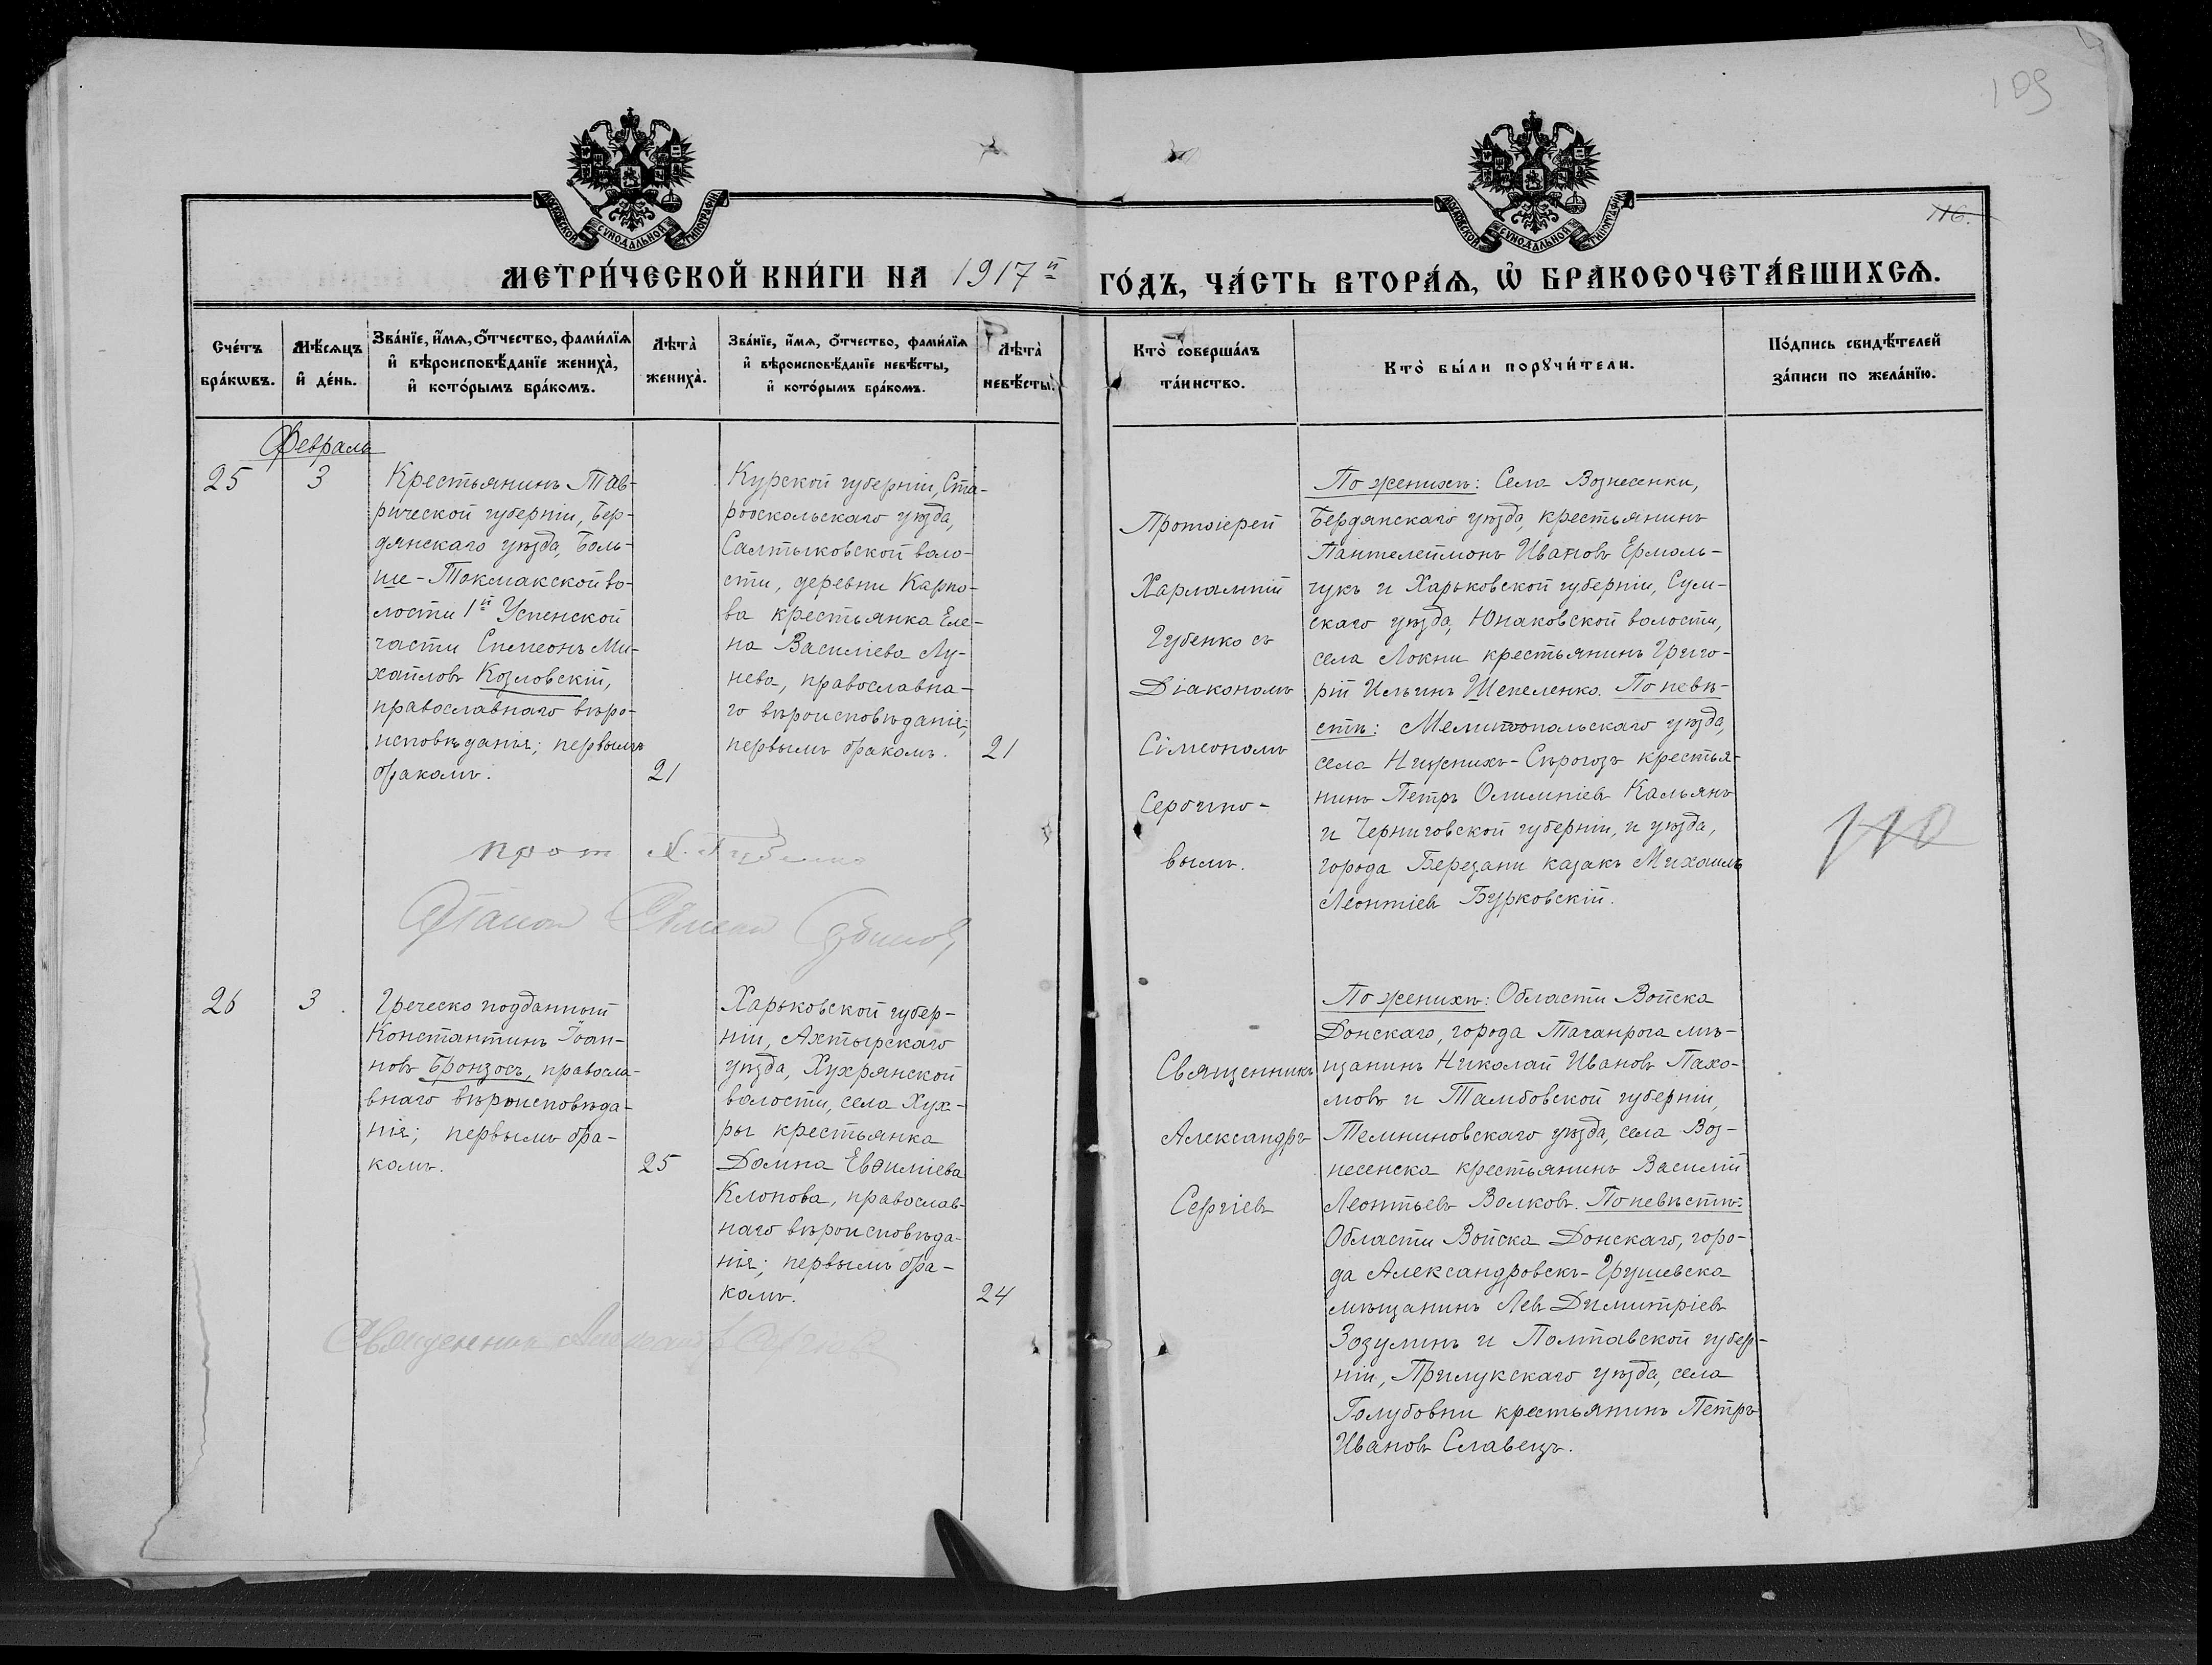 109
116.
МОСКОВСКОЙ СѴНОДАЛЬНОЙ ТИПОГРАФІИ
МОСКОВСКОЙ СѴНОДАЛЬНОЙ ТИПОГРАФІИ
МЕТРИ́ЧЕСКОЙ КНИ́ГИ НА 1917й ГО́ДЪ, ЧА́СТЬ ВТОРА́Ѧ, Ѽ БРАКОСОЧЕТА́ВШИХСѦ.
Сче́тъ
бра́кѡвъ.
Мѣ́сѧцъ
и҆ де́нь.
Зва́нїе, и҆́мѧ, ѻ҆́тчество, фами́лїѧ
и҆ вѣроисповѣ́данїе жениха̀,
и҆ кото́рымъ бра́комъ.
Лѣта̀
жениха̀.
Зва́нїе, и҆́мѧ, ѻ҆́тчество, фами́лїѧ
и҆ вѣроисповѣ́данїе невѣ́сты,
и҆ кото́рымъ бра́комъ.
Лѣта̀
невѣ́сты.
Кто̀ соверша́лъ
та́инство.
Кто̀ бы́ли порꙋчи́тели.
По́дпись свидѣ́телей
за́писи по жела́нїю.
Февраль
25
3
Крестьянинъ Тав-
рической губерніи, Бер-
дянскаго уѣзда, Боль-
ше-Токмакской во-
лости 1й Успенской
части Симеонъ Ми-
хайловъ Козловскій,
православнаго вѣро-
исповѣданія; первымъ
бракомъ.
21
Курской губерніи, Ста-
рооскольскаго уѣзда,
Салтыковской воло-
сти, деревни Карпо-
ва крестьянка Еле-
на Василіева Лу-
нева, православна-
го вѣроисповѣданія;
первымъ бракомъ.
21
Протоіерей
Харлампій
Губенко съ
Діакономъ
Сімеономъ
Сербино-
вымъ.
По женихѣ: Села Вознесенки,
Бердянскаго уѣзда, крестьянинъ
Пантелеймонъ Ивановъ Ермоль-
чукъ и Харьковской губерніи, Сум-
скаго уѣзда, Юнаковской волости,
села Локни крестьянинъ Григо-
рій Ильинъ Шепеленко. По невѣ-
стѣ: Мелитопольскаго уѣзда,
села Нижнихъ-Сѣрогозъ крестья-
нинъ Петръ Олимпіевъ Кальянъ
и Черниговской губерніи, и уѣзда,
города Березани казакъ Михаилъ
Леонтіевъ Бурковскій.
110
прот Х. Губенко
26
3.
Греческо подданный
Константинъ Іоан-
новъ Бронзосъ, правосла-
внаго вѣроисповѣда-
нія; первымъ бра-
комъ.
25
Харьковской губер-
ніи, Ахтырскаго
уѣзда, Хухрянской
волости, села Хух-
ры крестьянка
Домна Евѳиміева
Клопова, православ-
наго вѣроисповѣда-
нія; первымъ бра-
комъ.
24
Священникъ
Александръ
Сергіевъ
По женихѣ: Области Войска
Донскаго, города Таганрога мѣ-
щанинъ Николай Ивановъ Пахо-
мовъ и Тамбовской губерніи,
Темниковскаго уѣзда, села Воз-
несенска крестьянинъ Василій
Леонтьевъ Волковъ. По невѣстѣ:
Области Войска Донскаго, горо-
да Александровскъ-Грушевска
мѣщанинъ Левъ Димитріевъ
Зозулинъ и Полтавской губер-
ніи, Прилукскаго уѣзда, села
Голубовки крестьянинъ Петръ
Ивановъ Славецъ.
Священникъ Александръ Сергіевъ